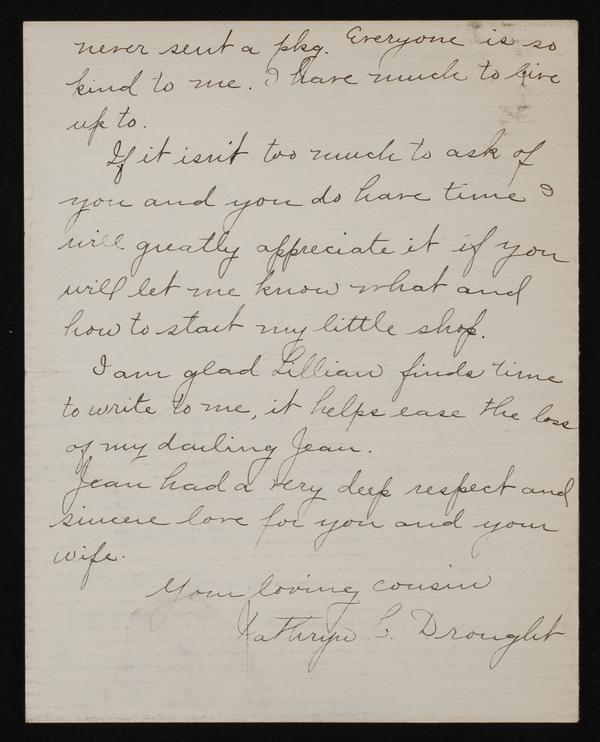 never sent a pkg. Everyone is so
kind to me. I have much to live
up to.
If it isn't too much to ask of
you and you do have time I
will greatly appreciate it if you
will let me know what and
how to start my little shop.
I am glad Lillian finds time
to write to me, it helps ease the loss
of my darling Jean.
Jean had a very deep respect and
sincere love for you and your
wife.
Your loving cousin
Kathryn C. Drought